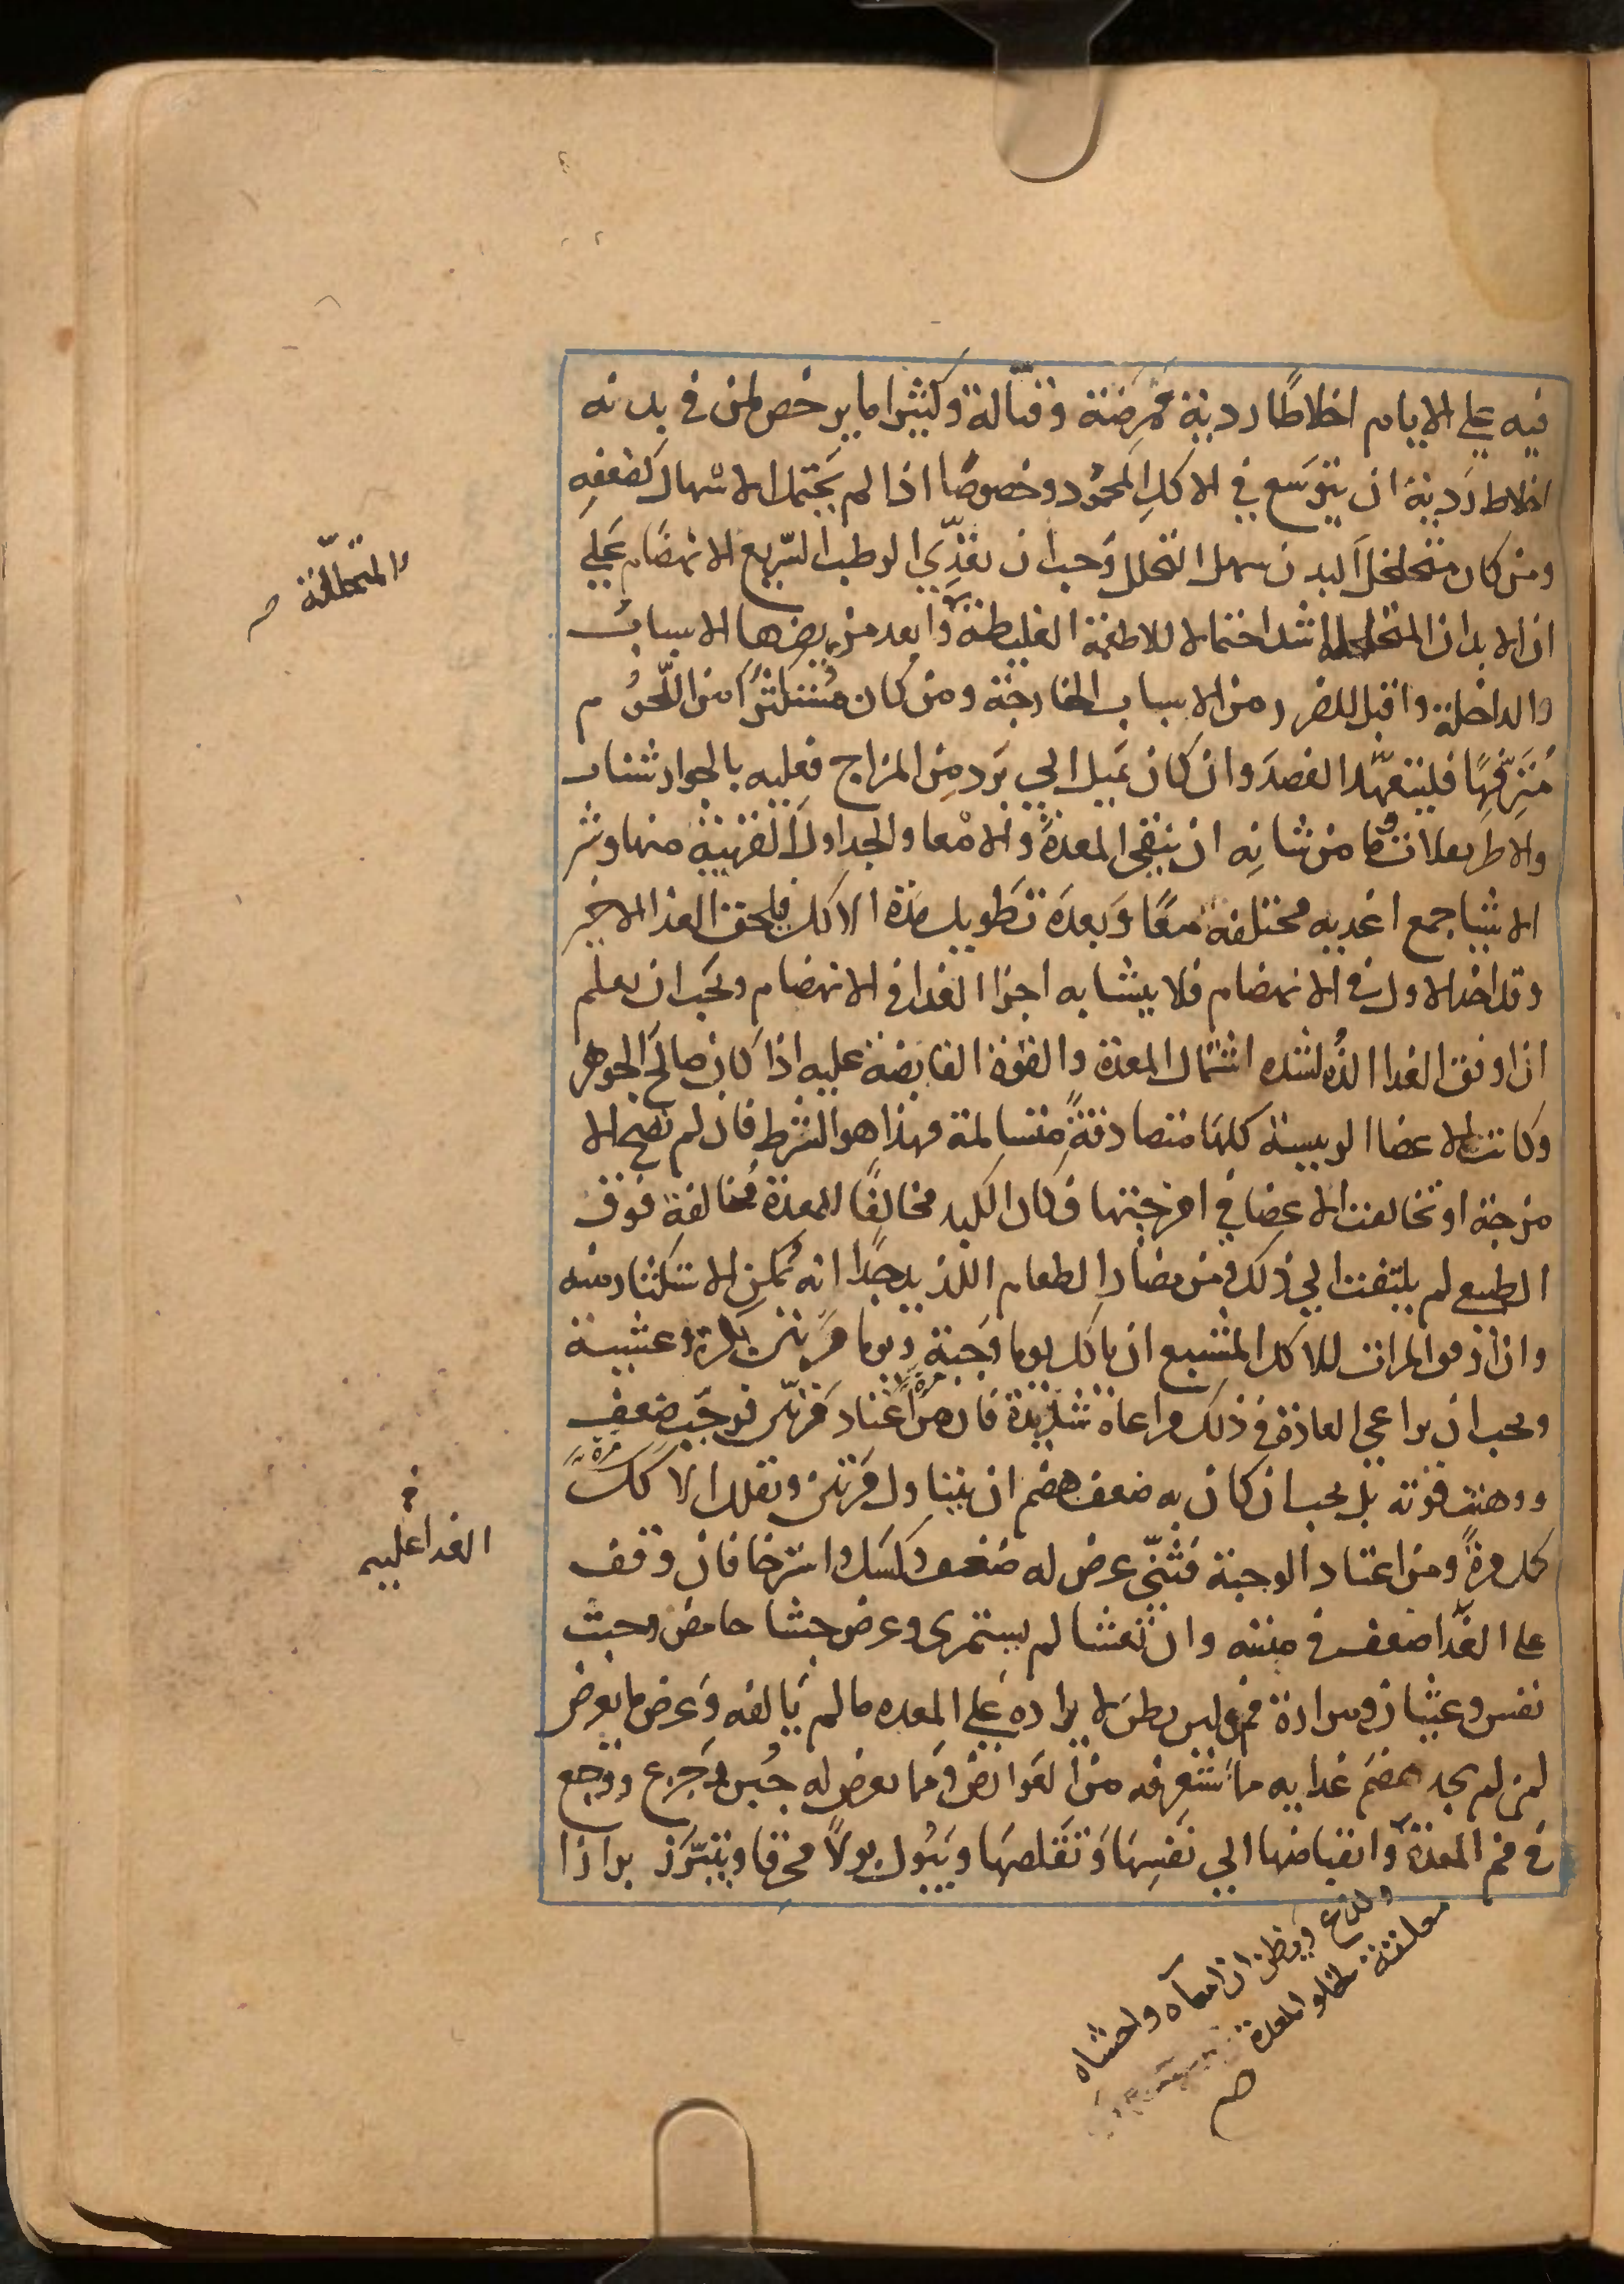 فيه علي الايام اخلاطًا رديئة مُمرِضة وقتّالة وكثيرًا ما يرخص لمن في بدنه
اخلاط رَديئة ان يتوسَع في الاكلِ المحمُود وخصوصًا اذا لم يَحتمل الاسْهال لضعفهِ
ومن كان متخلخل البدن سهل التحلل وَجب ان يغذّي الرطب السّريع الانهضام عَلي
ان الابدان المتخلخلة اشد احتمالا للاطعمة الغليظة وابعد من يضرها الاسباب
والداخلة واقبل للضرر من الاسباب الخارجة ومن كان مُستكثرًا من اللّحُوم
مُترفّهًا فليتعهّد الفصدَ وان كان يَميل الي بَرد مِن المزاج فعليه بالجوارشنات
والاطريفلات وما من شانِه ان ينقي المعدة والامْعا والجداول القريبة منها وشر
الاشيا جمع اغديه مختلفة معًا وَبعدَه تَطويل مدة الاكل فيلحق الغدا الاخير
وقد اخد الاول في الانهضام فلا يتشابه اجزا الغدا في الانهضام ويَجب ان يعلم
ان اوفق الغدا الذُه لشده اشتمال المعدة والقوة القابضة عليه اذا كان صالحَ الجوهر
وكانت الاعضا الرييسة كلهَا متصادقةً متسالمة فهذا هو الشرط فان لم تصح الا
مزجة او تخالفت الاعضا في امزجتها فكان الكبد مخالفًا للمعدة مُخالفة فوق
الطبيع لم يلتفت الي ذلك ومن مضار الطعام اللذيد جدًا انه يُمكن الاستكثار منه
وان اوفق المرات للاكل المشبع ان ياكل يوما وَجبة ويوما مَرتين بكرة وعشية
ويجب ان يراعي العادة في ذلك مراعاة شديدة فان من اعتاد مَرتين فوجَبَ ضعف
ووهنت قوته بل يجب ان كان به ضعف هضم ان يتناول مَرتين ويقلل الاكل
كل مرةً ومن اعتاد الوجبة فثنّي عرض له ضعف وكسَل واسترخا فان وقف
علي الغَدا ضعف في مبيته وان تعشا لم يستمري وعرض جشا حامض وخبث
نفس وغثيان ومرارة فم ولين بطن لايراده عَلي المعده ما لم تَالفه وَعرض ما يعرض
لمن لم يجد هضمَ غدايه ما سَتَعرفه من العَوارض ومما يعرض له جُبن وجَزع ووَجع
في فم المعدة وانقباضها الي نفسِهَا وَتقَلصهَا ويَبُول بولاً محرقا ويتَبرَّز برازا
والمتخلخلة صح
الغدا عليه
ولدع ويظن ان امعآه واحشاه
معلقة لخلو المعدة
صح